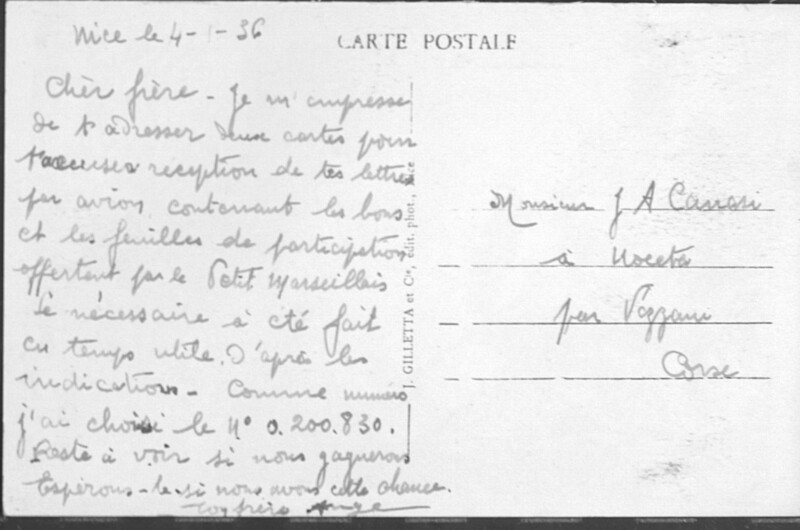 Nice le 4-1-36
CARTE POSTALE
Cher frère - Je m'empresse
de t'adresser deux cartes pour
t'accuser reception de tes lettres
par avion, contenant les bons
et les feuilles de participation
offertent par le Petit Marseillais
Le nécessaire à été fait
en temps utile. D'après les
indications - Comme numéro
j'ai choisi le N° 0.200.830.
Reste à voir si nous gagnerons
Espérons-le si nous avons cette chance.
Ton frère Ange
J. GILLETTA et Cie, édit. phot.,
Monsieur J A
à Noceta
par Vezzani
Corse